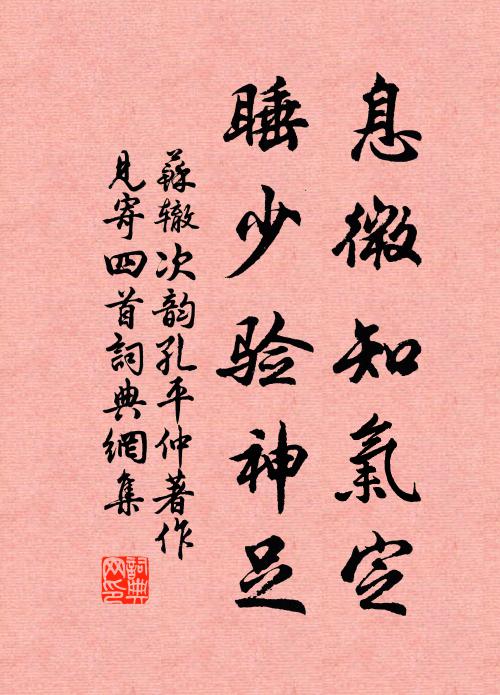 息微知氣定
睡少验神足
蘇辙次韵孔平仲著作
見寄四首詞典網集
詞典
网印